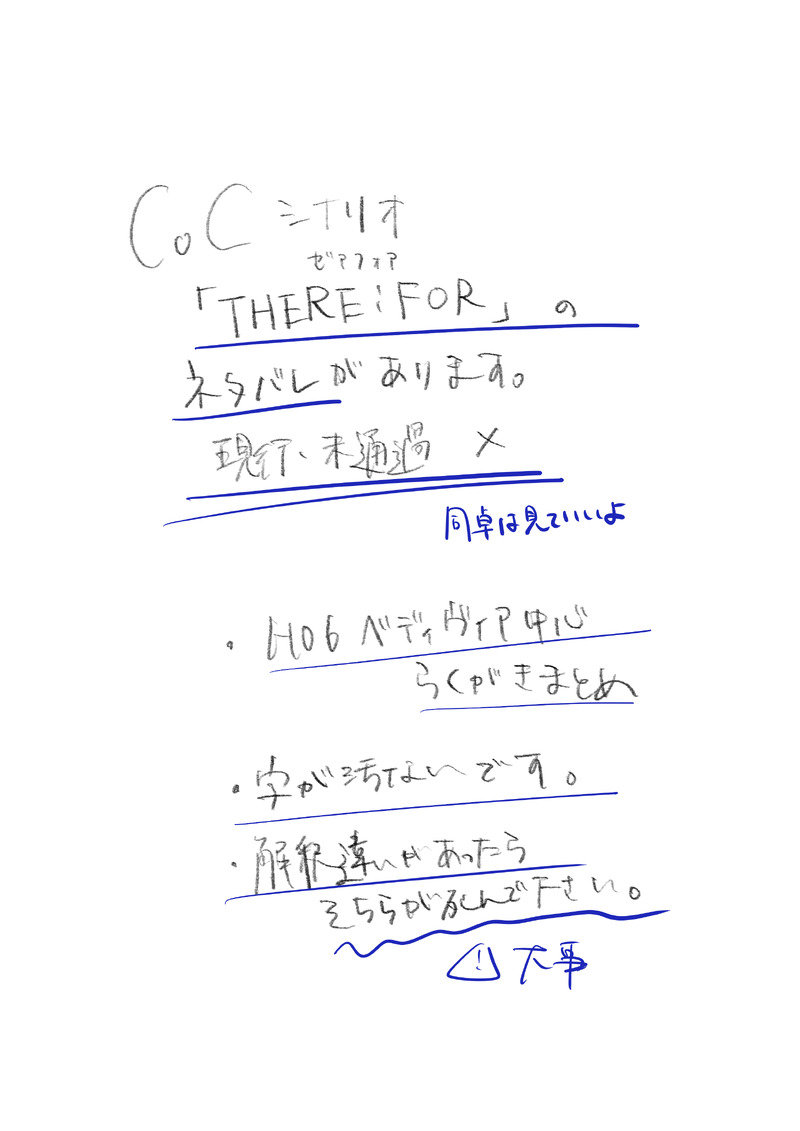 CoC シナリオ
ゼアフォア
「THERE:FOR」の
ネタバレがあります。
現行、未通過 ×
同卓は見ていいよ
・HO6 ベディヴィア中心
らくがきまとめ
・字が汚ないです。
・解釈違いがあったら
そちらが死んで下さい。
! 大事